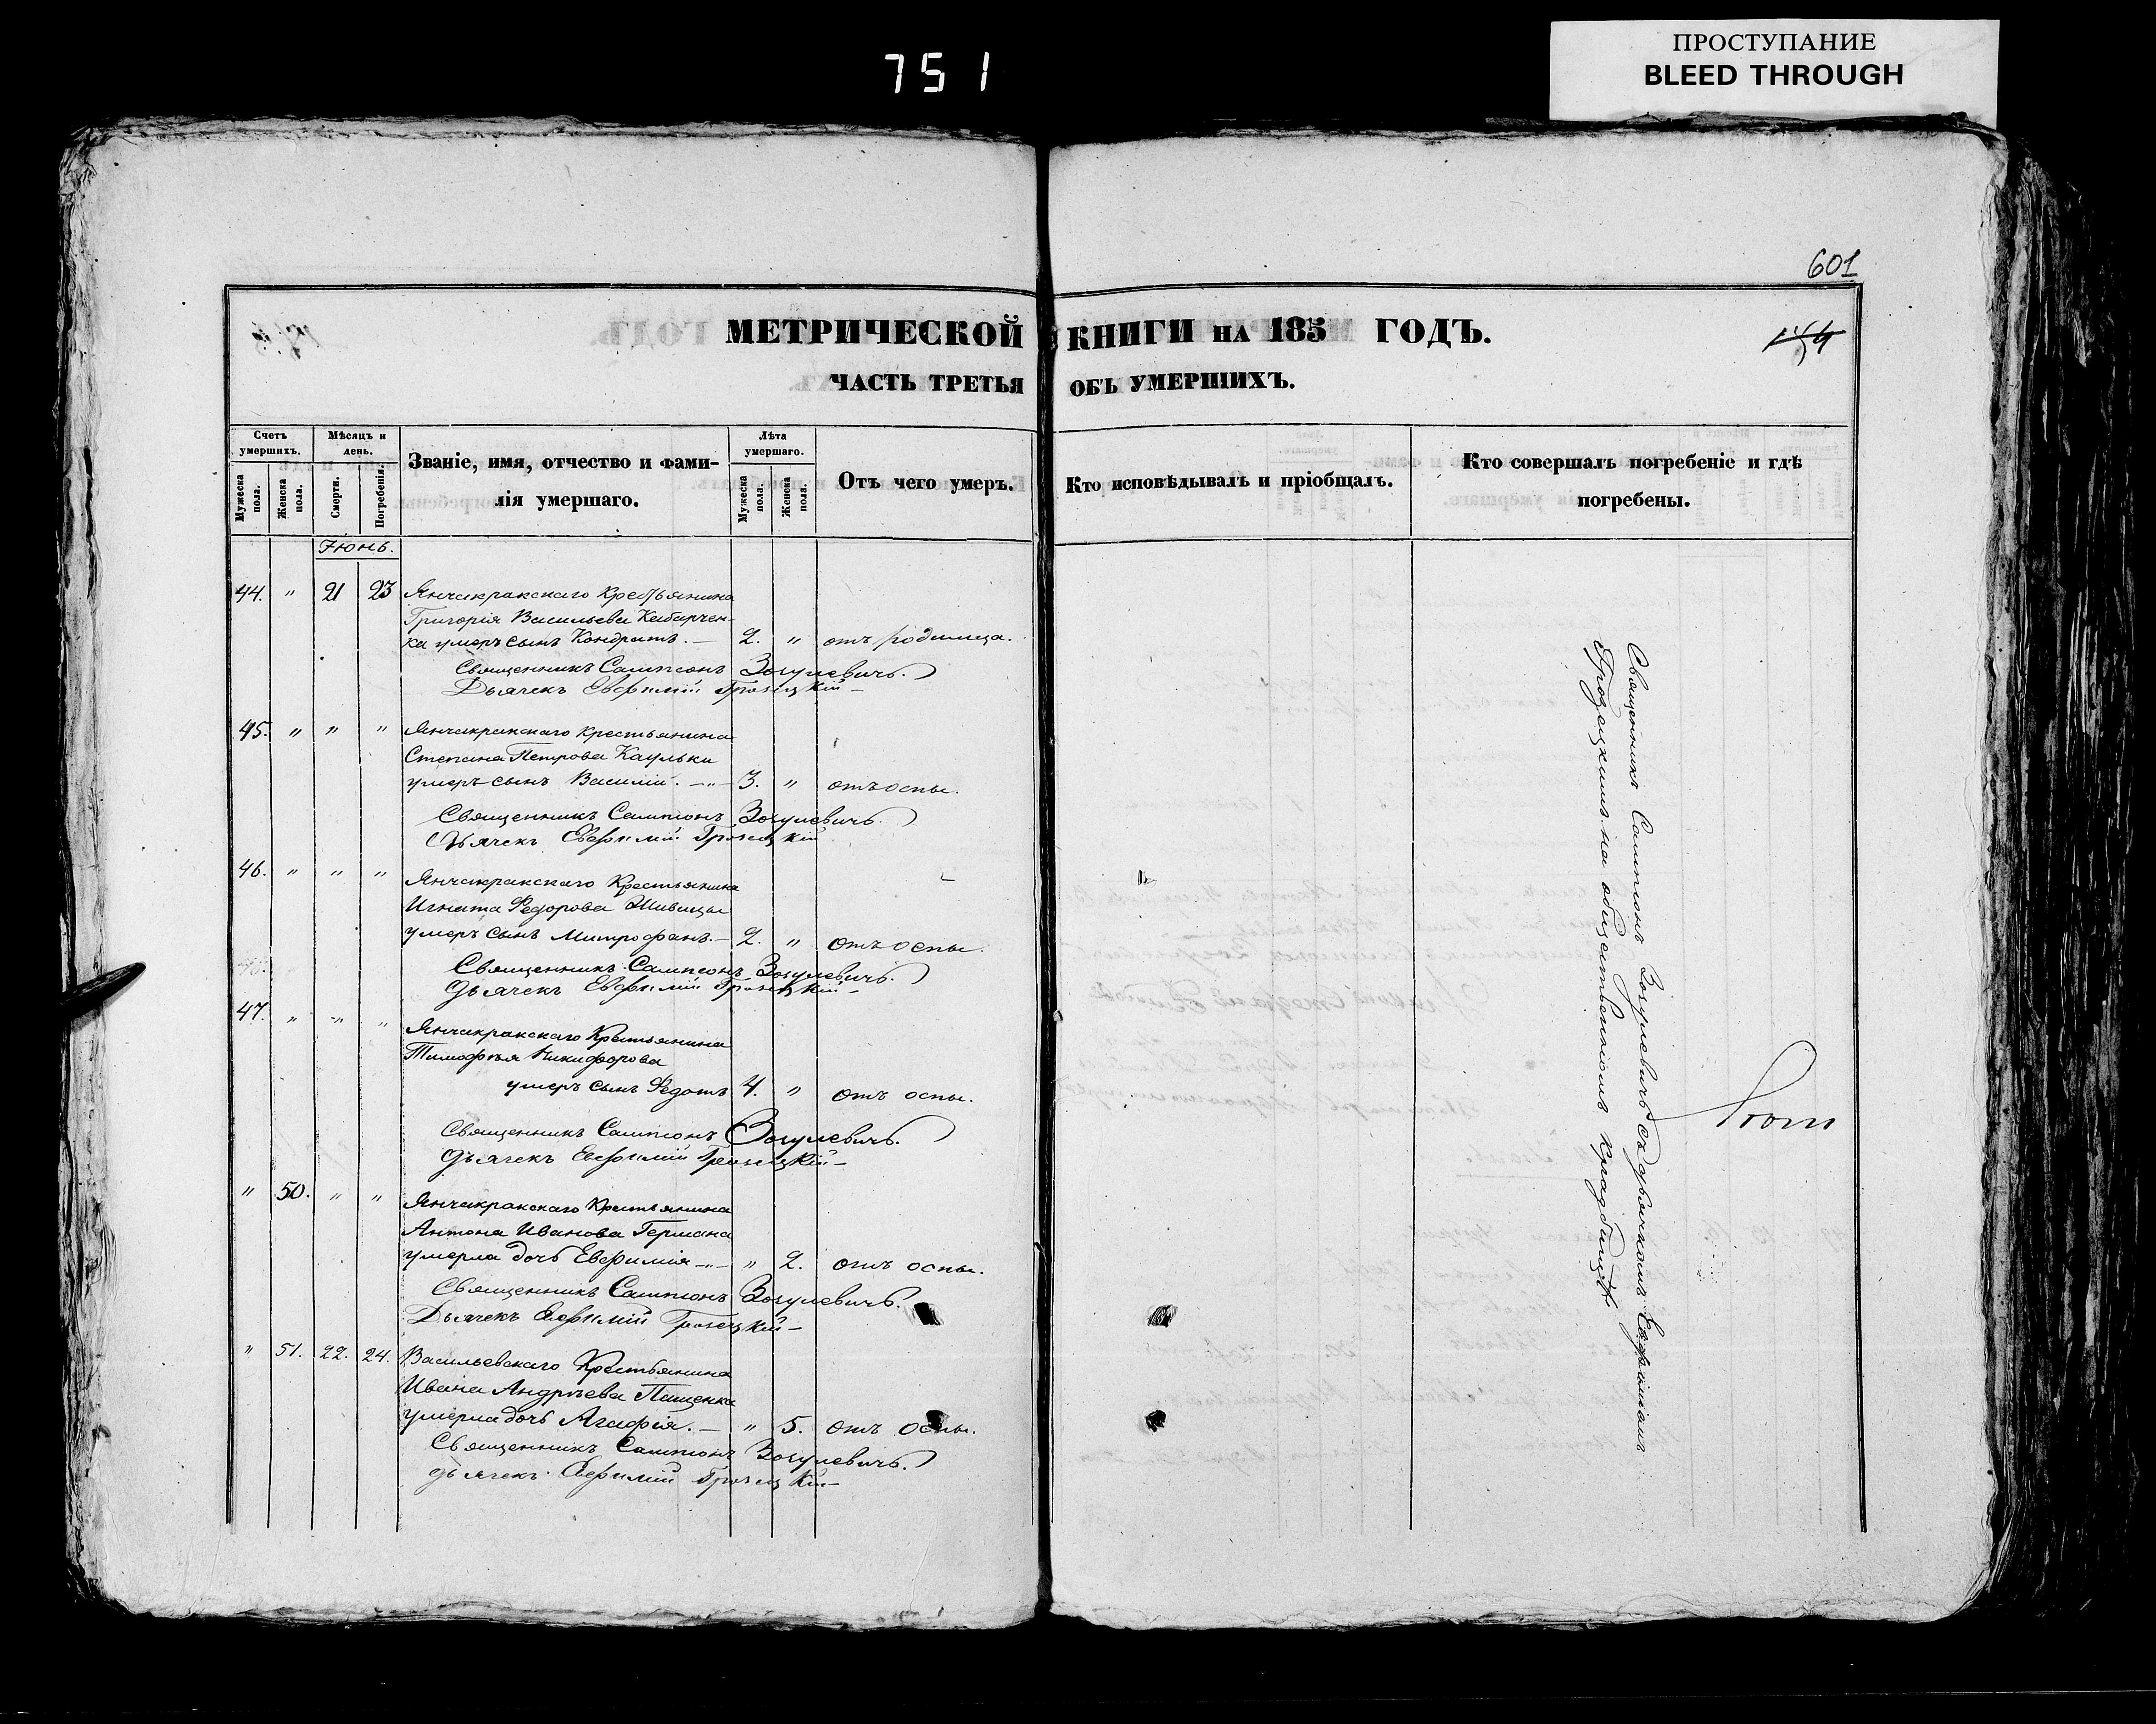 751
ПРОСТУПАНИЕ
BLEED THROUGH
601
МЕТРИЧЕСКОЙ КНИГИ НА 185 ГОДЪ.
ЧАСТЬ ТРЕТЬЯ ОБЪ УМЕРШИХЪ.
Счетъ умершихъ.
Мужеска пола.
Женска пола.
Мѣсяцъ и день.
Смерти.
Погребенія.
Званіе, имя, отчество и фами-
лія умершаго.
Лѣта умершаго.
Мужеска пола.
Женска пола.
Отъ чего умеръ.
Кто исповѣдывалъ и пріобщалъ.
Кто совершалъ погребеніе и гдѣ
погребены.
Іюнь.
44. " 21 23 Янчакракскаго Крестьянина
Григорія Васильева Кабарчен-
ка умеръ сынъ Кондратъ. — 2. " отъ родимца.
Священникъ Сампсонъ Зогулевичъ.
Дьячекъ Евфимій Грозецкій —
45. " " " Янчакракскаго Крестьянина
Степана Петрова Каульки
умеръ сынъ Василій. —"— 3. " отъ оспы.
Священникъ Сампсонъ Зогулевичъ.
Дьячекъ Евфимій Грозецкій
46. " " " Янчакракскаго Крестьянина
Игната Федорова Шивицы
умеръ сынъ Митрофанъ. — 2. " отъ оспы.
Священникъ Сампсонъ Зогулевичъ.
Дьячекъ Евфимій Грозецкій —
47. " " " Янчакракскаго Крестьянина
Тимофѣя Никифорова
умеръ сынъ Федотъ 4. " отъ оспы.
Священникъ Сампсонъ Зогулевичъ.
Дьячекъ Евфимій Грозецкій —
" 50. " " Янчакракскаго Крестьянина
Антона Иванова Германа
умерла дочь Евфимія —"— " 2. отъ оспы.
Священникъ Сампсонъ Зогулевичъ.
Дьячекъ Евфимій Грозецкій —
" 51. 22. 24. Васильевскаго Крестьянина
Ивана Андрѣева Пащенка
умерла дочь Агафія. — " 5. отъ оспы.
Священникъ Сампсонъ Зогулевичъ.
Дьячекъ Евфимій Грозецкій —
Священникъ Сампсонъ Зогулевичъ съ дьячкомъ Евфиміемъ
Грозецкимъ на общественномъ кладбищѣ